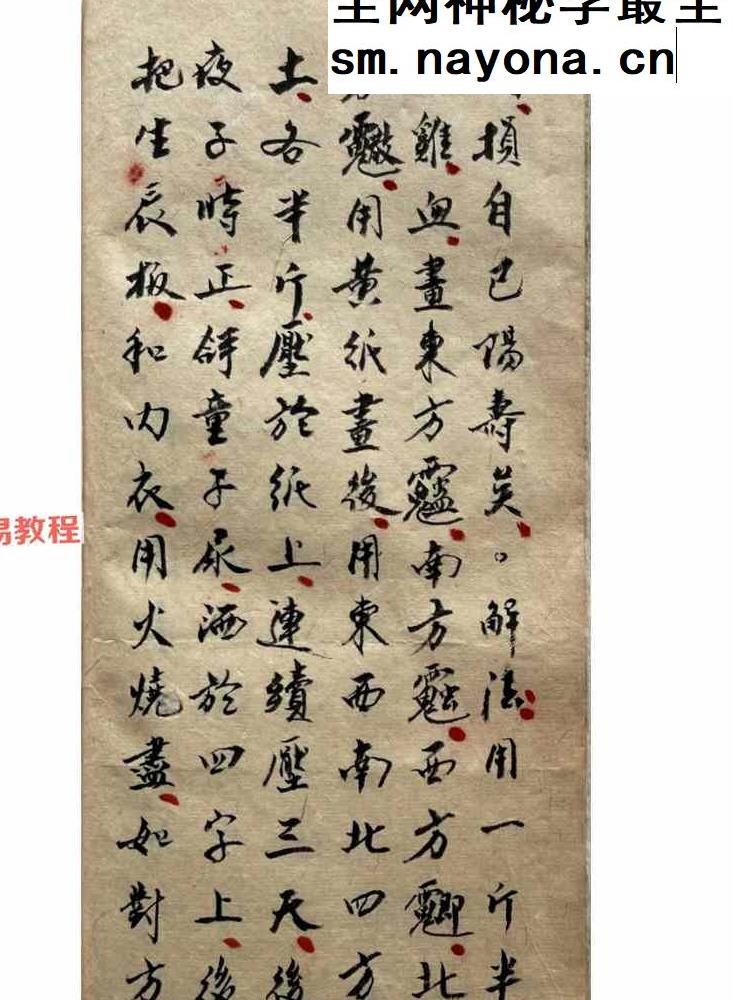 全网神秘学最全
sm.nayona.cn
損自己陽壽矣。解法用一斤半
雞血畫東方南方西方北
方用黃紙畫後用東西南北四方
土各半斤壓於紙上連續壓三天後
夜子時正童子尿洒於四字上後
把生辰板和內衣用火燒盡如對方
易教程